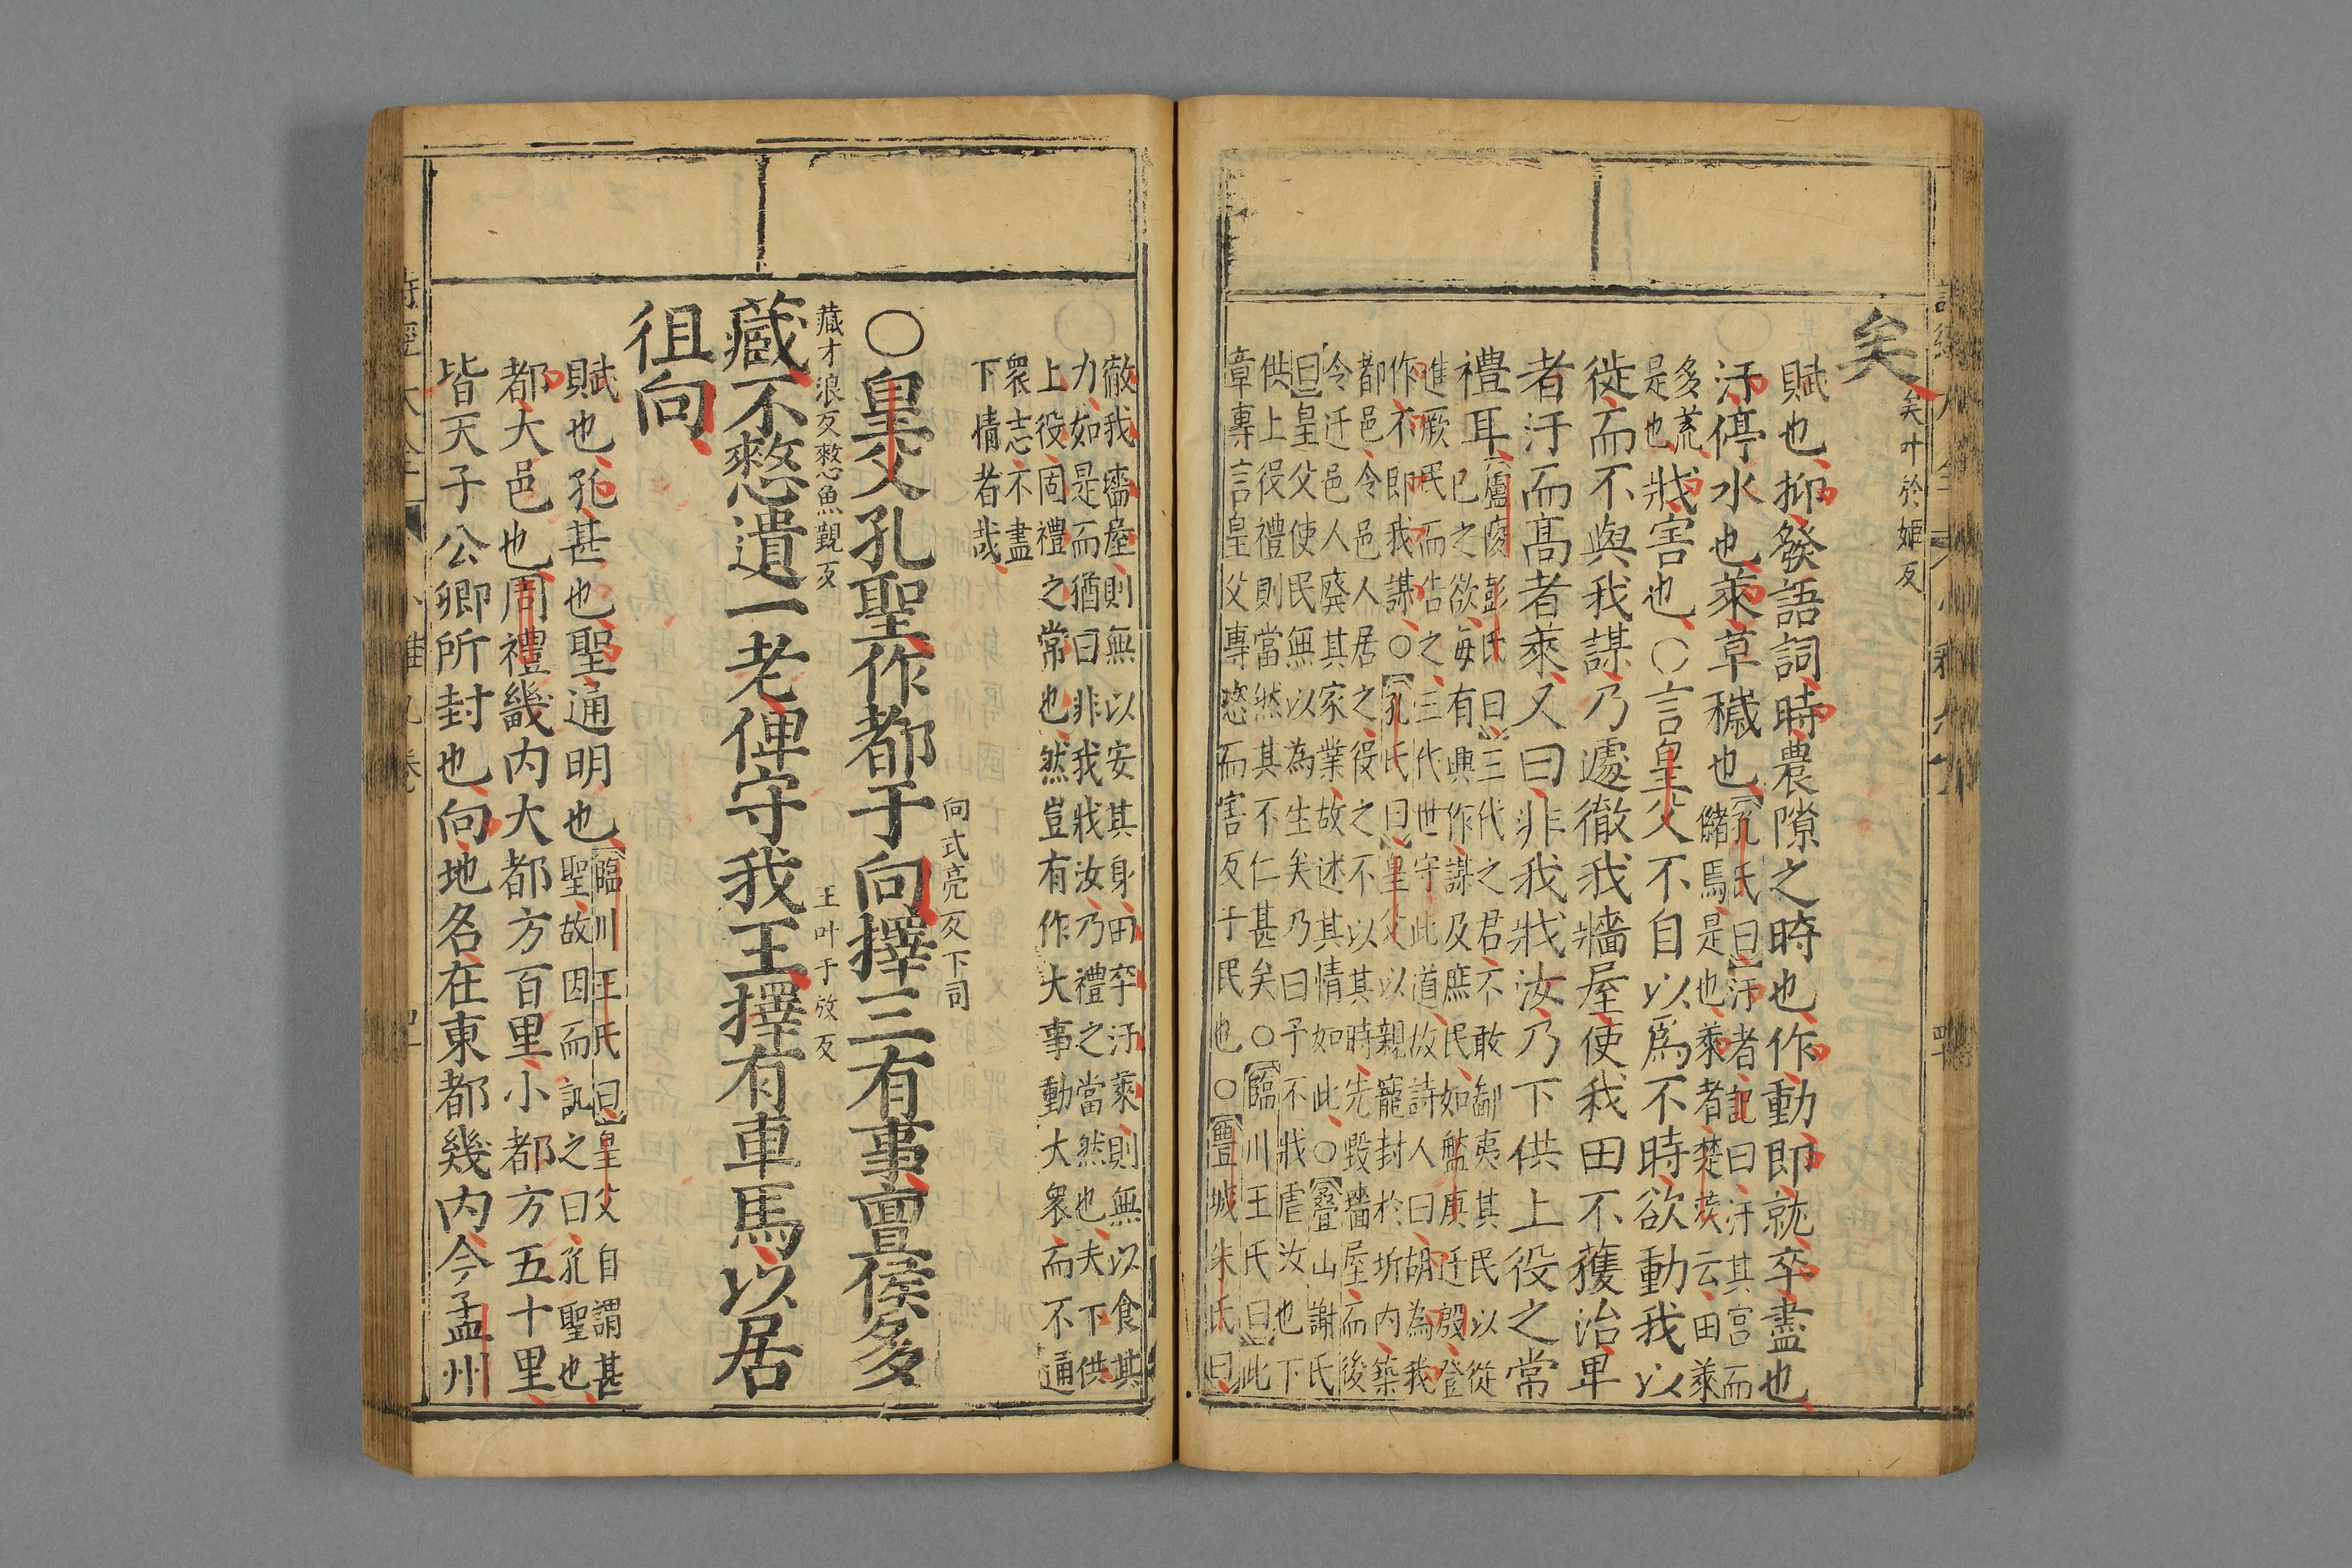 矣矣叶於姬反
賦也抑發語詞時農隙之時也作動即就卒盡也
汙停水也萊草穢也孔氏曰汙者記曰汙其宮而
豬焉是也萊者楚茨云田萊
多荒
是也戕害也○言皇父不自以爲不時欲動我以
徙而不與我謀乃遽徹我牆屋使我田不獲治卑
者汙而高者萊又曰非我戕汝乃下供上役之常
禮耳廬陵彭氏曰三代之君不敢鄙夷其民以從
已之欲每有興作謀及庶民如盤庚迁殷登
進厥民而告之三代世守此道故詩人曰胡為我
作不即我謀○孔氏曰皇父以親寵封於圻内築
都邑令邑人居之役之不以其時先毀牆屋而後
令迁邑人廢其家業故述其情如此○疊山謝氏
曰皇父使民無以為生矣乃曰予不戕虐汝也下
供上役禮則當然其不仁甚矣○臨川王氏曰此
章專言皇父專恣而害及于民也○豐城朱氏曰
徹我墻屋則無以安其身田卒汙萊則無以食其
力如是而猶曰非我戕汝乃禮之當然也夫下供
上役固禮之常也然豈有作大事動大衆而不通
衆志不盡
下情者哉
○皇父孔聖作都于向向式亮反下同擇三有事亶侯多
藏藏才浪反不憗憗魚覲反遺一老俾守我王王叶于放反擇有車馬以居
徂向
賦也孔甚也聖通明也臨川王氏曰皇父自謂甚
聖故因而訊之曰孔聖也
都大邑也周禮畿内大都方百里小都方五十里
皆天子公卿所封也向地名在東都幾内今孟州